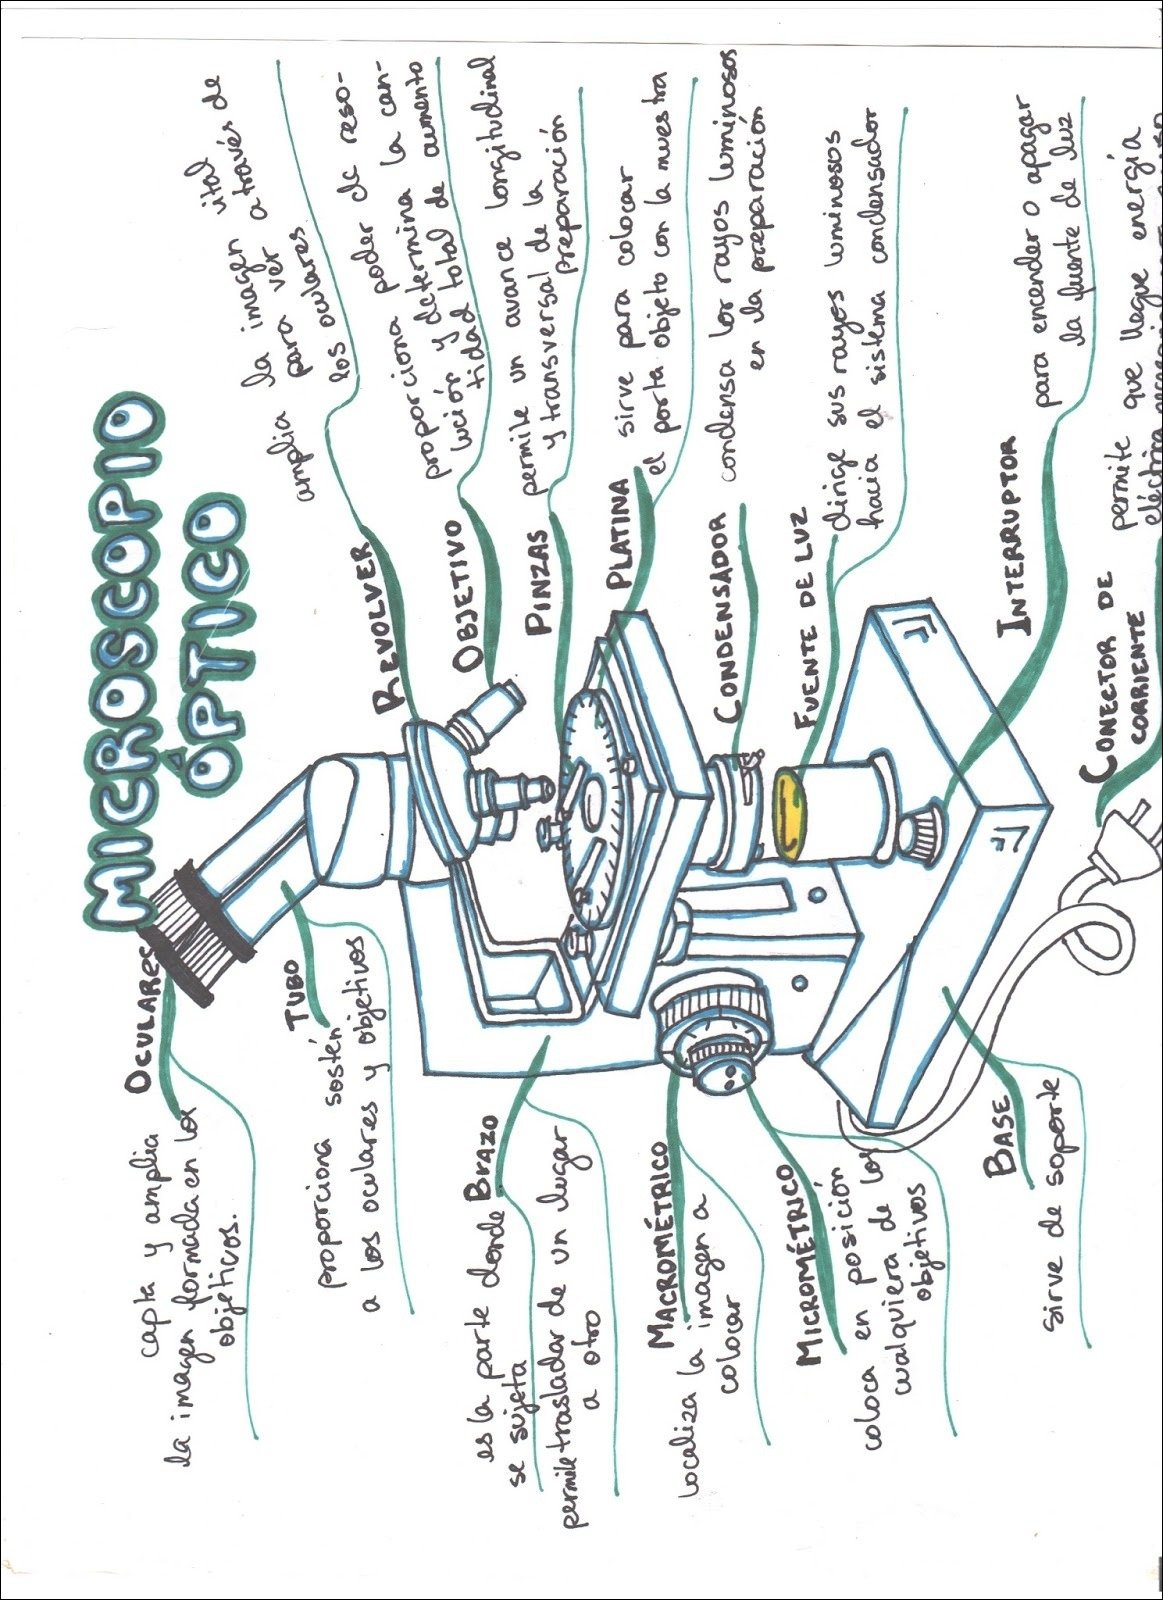 MICROSCOPIO
ÓPTICO
OCULARES
capta y amplia
la imagen formada en los
objeticos.
TUBO
proporciona sostén
a los oculares y objetivos
BRAZO
es la parte donde
se sujeta
permite trasladar de un lugar
a otro
MACROMÉTRICO
Localiza la imagen a
colocar
MICROMÉTRICO
coloca en posición
cualquiera de los
objetivos
BASE
sirve de soporte
REVOLVER
amplia la imagen
para ver a través de
los oculares
OBJETIVO
proporciona poder de reso-
lución y determina la can-
tidad total de aumento
PINZAS
permite un avance longitudinal
y transversal de la
preparación
PLATINA
sirve para colocar
el porta objeto con la muestra
CONDENSADOR
condensa los rayos luminosos
en la preparación
FUENTE DE LUZ
dirige sus rayos luminosos
hacia el sistema condensador
INTERRUPTOR
para encender o apagar
la fuente de luz
CONECTOR DE
CORRIENTE
permite que llegue energía
eléctrica